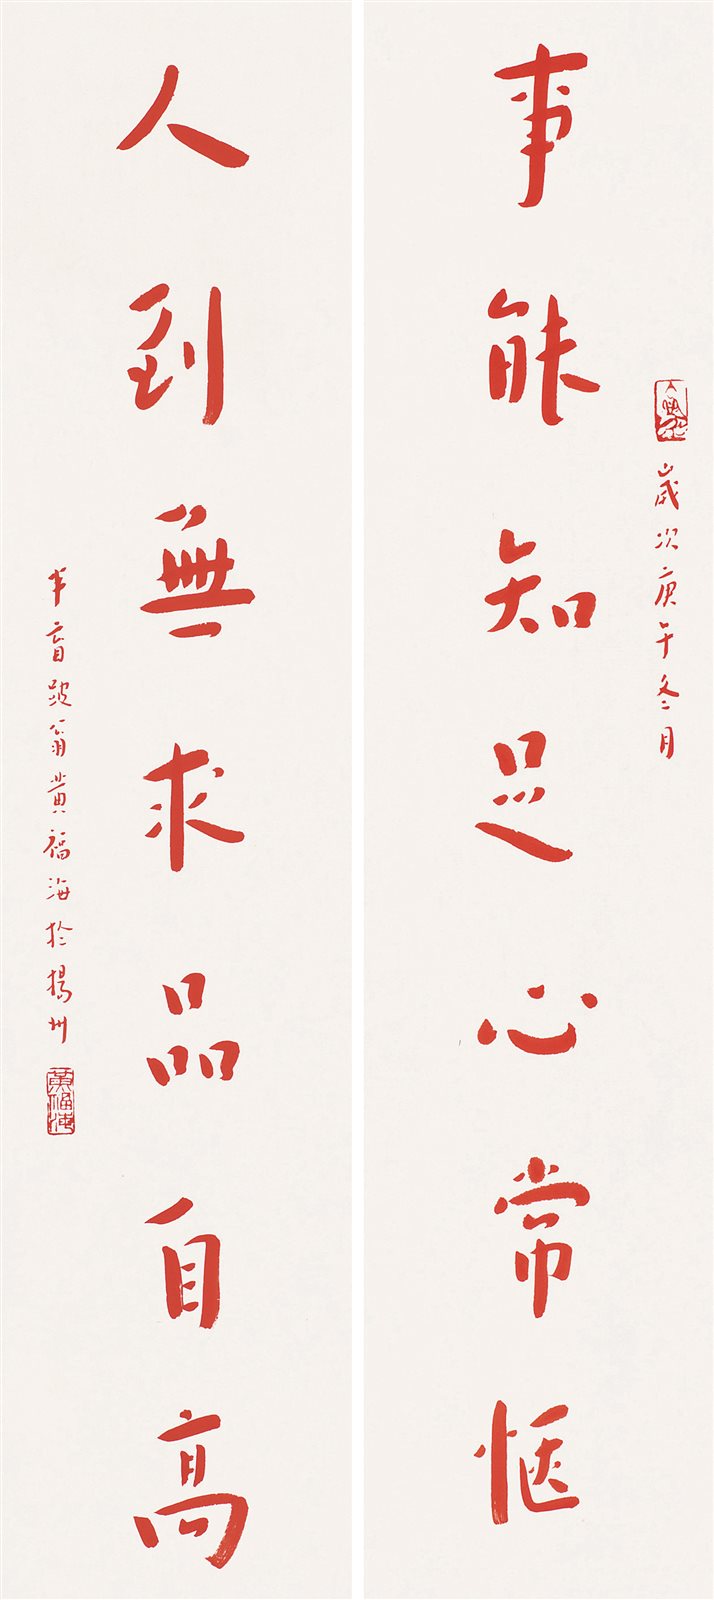 歲次庚午冬月
事能知足心常愜
人到無求品自高
半盲跛翁黄福海於揚州
黄福海